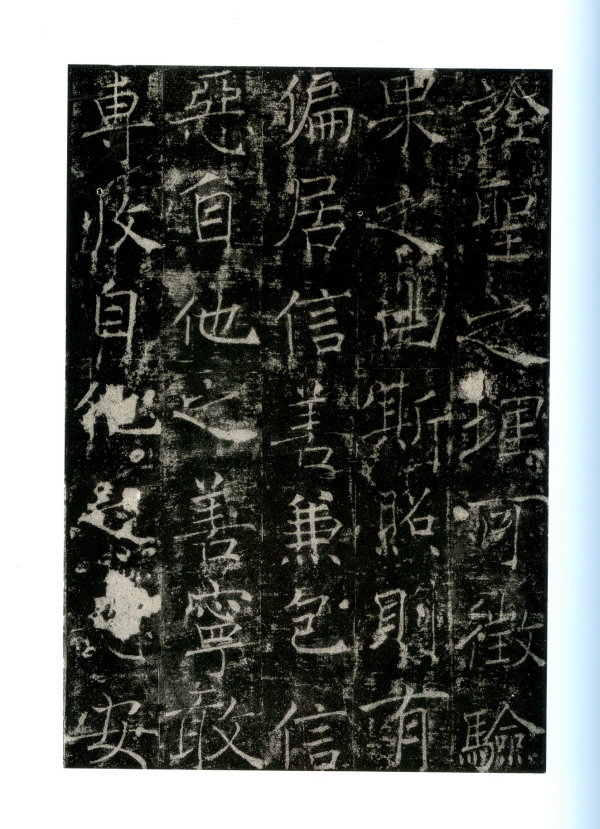 詮聖之理可徵驗
果之幽斯照則有
偏居信善兼包信
惡自他之善寧敢
車收自他安